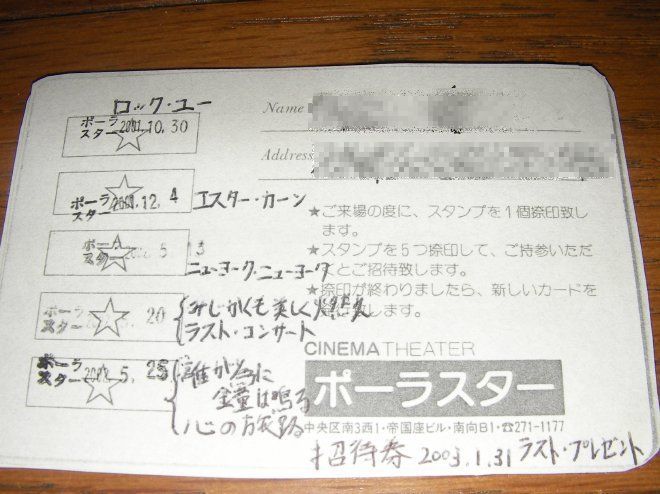 ロック・ユー
ポーラ
スター 2001.10.30
Name
Address
ポーラ
スター 2001.12.4
エスター・カーン
★ご来場の度に、スタンプを1個捺印致し
ます。
ポーラ
スター
5.13
ニューヨーク・ニューヨーク
★スタンプを5つ捺印して、ご持参いただ
くとご招待致します。
★捺印が終わりましたら、新しいカードを
致します。
ポーラ
スター
20
みじかくも美しく燃え
ラスト・コンサート
ポーラ
スター 2002.5.25
誰が為に
金童は鳴る
心の旅路
CINEMA THEATER
ポーラスター
中央区南3西1・帝国座ビル・南向B1・☎271-1177
招待券 2003.1.31 ラスト・プレゼント